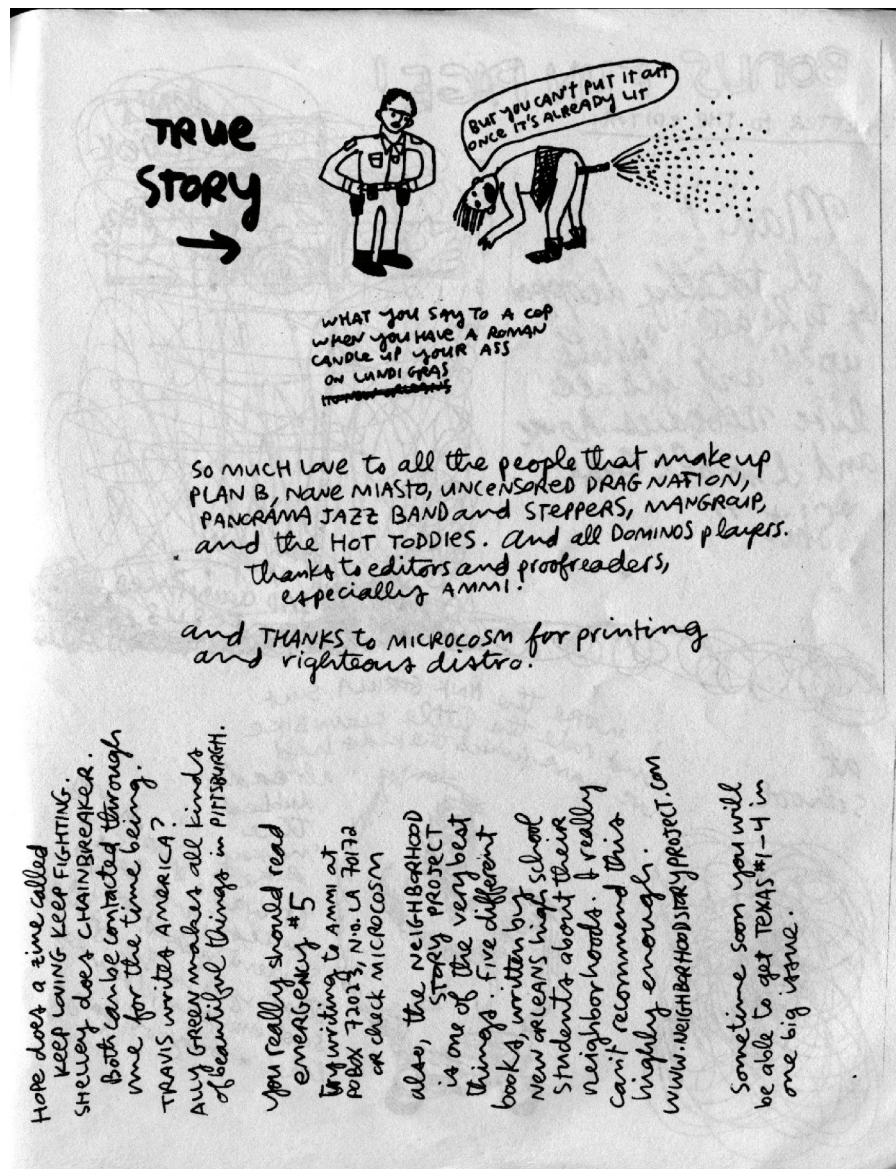 TRUE
STORY
BUT YOU CAN'T PUT IT OUT
ONCE IT'S ALREADY LIT
WHAT YOU SAY TO A COP
WHEN YOU HAVE A ROMAN
CANDLE UP YOUR ASS
ON LUNDI GRAS
SO MUCH LOVE to all the people that make up
PLAN B, NOWE MIASTO, UNCENSORED DRAG NATION,
PANORAMA JAZZ BAND and STEPPERS, MANGROUP,
and the HOT TODDIES. and all DOMINOS players.
thanks to editors and proofreaders,
especially AMMI.
and THANKS to MICROCOSM for printing
and righteous distro.
HOPE does a zine called
KEEP LOVING KEEP FIGHTING.
SHELLEY does CHAINBREAKER.
Both can be contacted through
me for the time being.
TRAVIS writes AMERICA?
ALLY GREEN makes all kinds
of beautiful things in PITTSBURGH.
you really should read
EMERGENCY #5
try writing to AMMI at
PO BOX 72023, N.O. LA 70172
or check MICROCOSM
also, the NEIGHBORHOOD
STORY PROJECT
is one of the very best
things. Five different
books, written by
NEW ORLEANS high school
students about their
neighborhoods. I really
can't recommend this
highly enough.
WWW.NEIGHBORHOODSTORYPROJECT.COM
Sometime soon you will
be able to get TEXAS #1-4 in
one big issue.